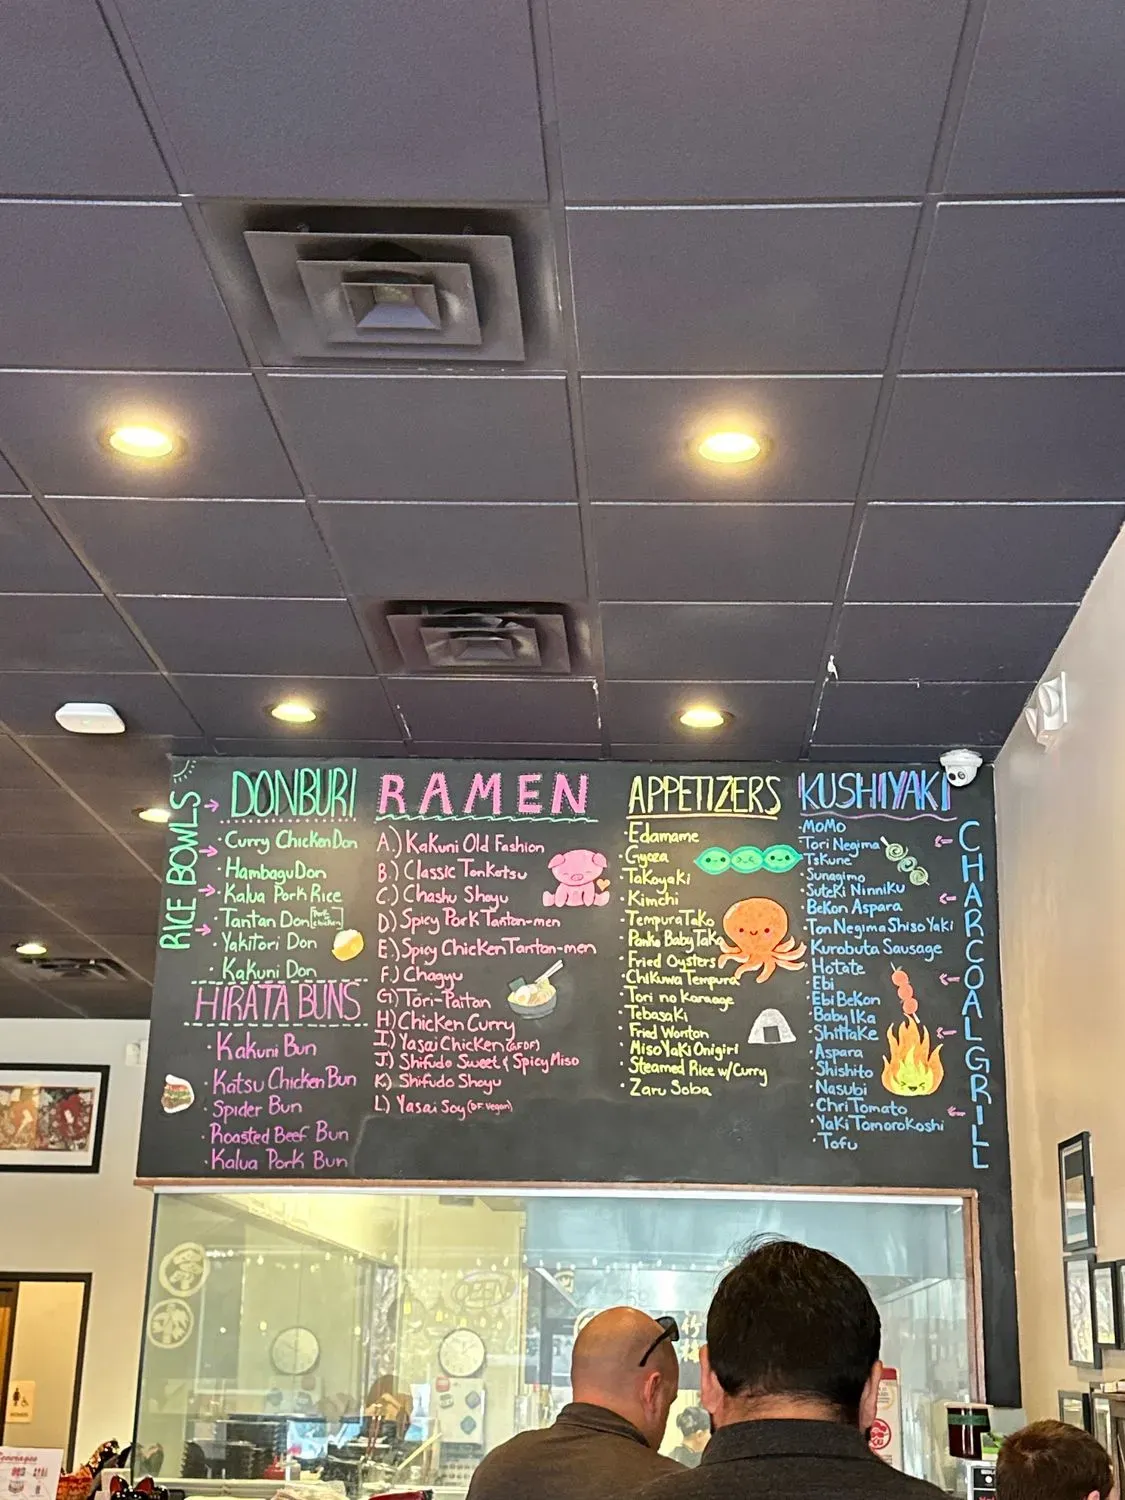 RICE BOWLS
DONBURI
Curry Chicken Don
Hambagu Don
Kalua Pork Rice
Tantan Don [Pork chicken]
Yakitori Don
Kakuni Don
HIRATA BUNS
Kakuni Bun
Katsu Chicken Bun
Spider Bun
Roasted Beef Bun
Kalua Pork Bun
RAMEN
A.) Kakuni Old Fashion
B.) Classic Tonkotsu
C.) Chashu Shoyu
D.) Spicy Pork Tantan-men
E.) Spicy Chicken Tantan-men
F.) Chagyu
G) Tori-Paitan
H) Chicken Curry
I) Yasai Chicken (GFDF)
J) Shifudo Sweet & Spicy Miso
K) Shifudo Shoyu
L) Yasai Soy (DF Vegan)
APPETIZERS
Edamame
Gyoza
Takoyaki
Kimchi
Tempura Tako
Panko Baby Tako
Fried Oysters
Chikuwa Tempura
Tori no Karaage
Tebasaki
Fried Wonton
Miso Yaki Onigiri
Steamed Rice w/Curry
Zaru Soba
KUSHIYAKI
MoMo
Tori Negima
Tskune
Sunagimo
SuteKi Ninniku
BeKon Aspara
Ton Negima Shiso Yaki
Kurobuta Sausage
Hotate
Ebi
Ebi BeKon
Baby Ika
ShiitaKe
Aspara
Shishito
Nasubi
Chri Tomato
Yaki Tomorokoshi
Tofu
CHARCOAL GRILL
OPEN
WOMEN
Beverages